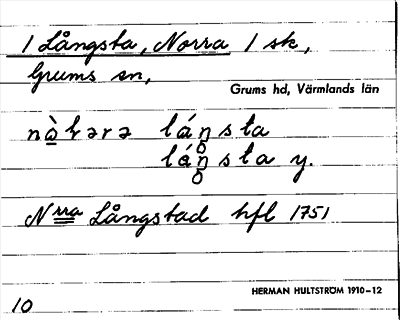 1 Långsta, Norra 1 sk,
Grums sn,
Grums hd, Värmlands län
nòrərə láŋ̥sta
láŋ̥sta y.
Nrra Långstad hfl 1751
HERMAN HULTSTRÖM 1910–12
10